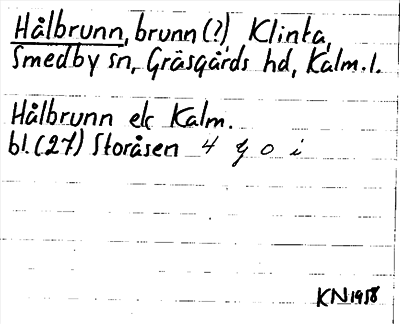 Hålbrunn, brunn(?) Klinta,
Smedby sn, Gräsgårds hd, Kalm. l.
Hålbrunn ek Kalm.
bl. (27) Storåsen 4 g o i
KN 1958